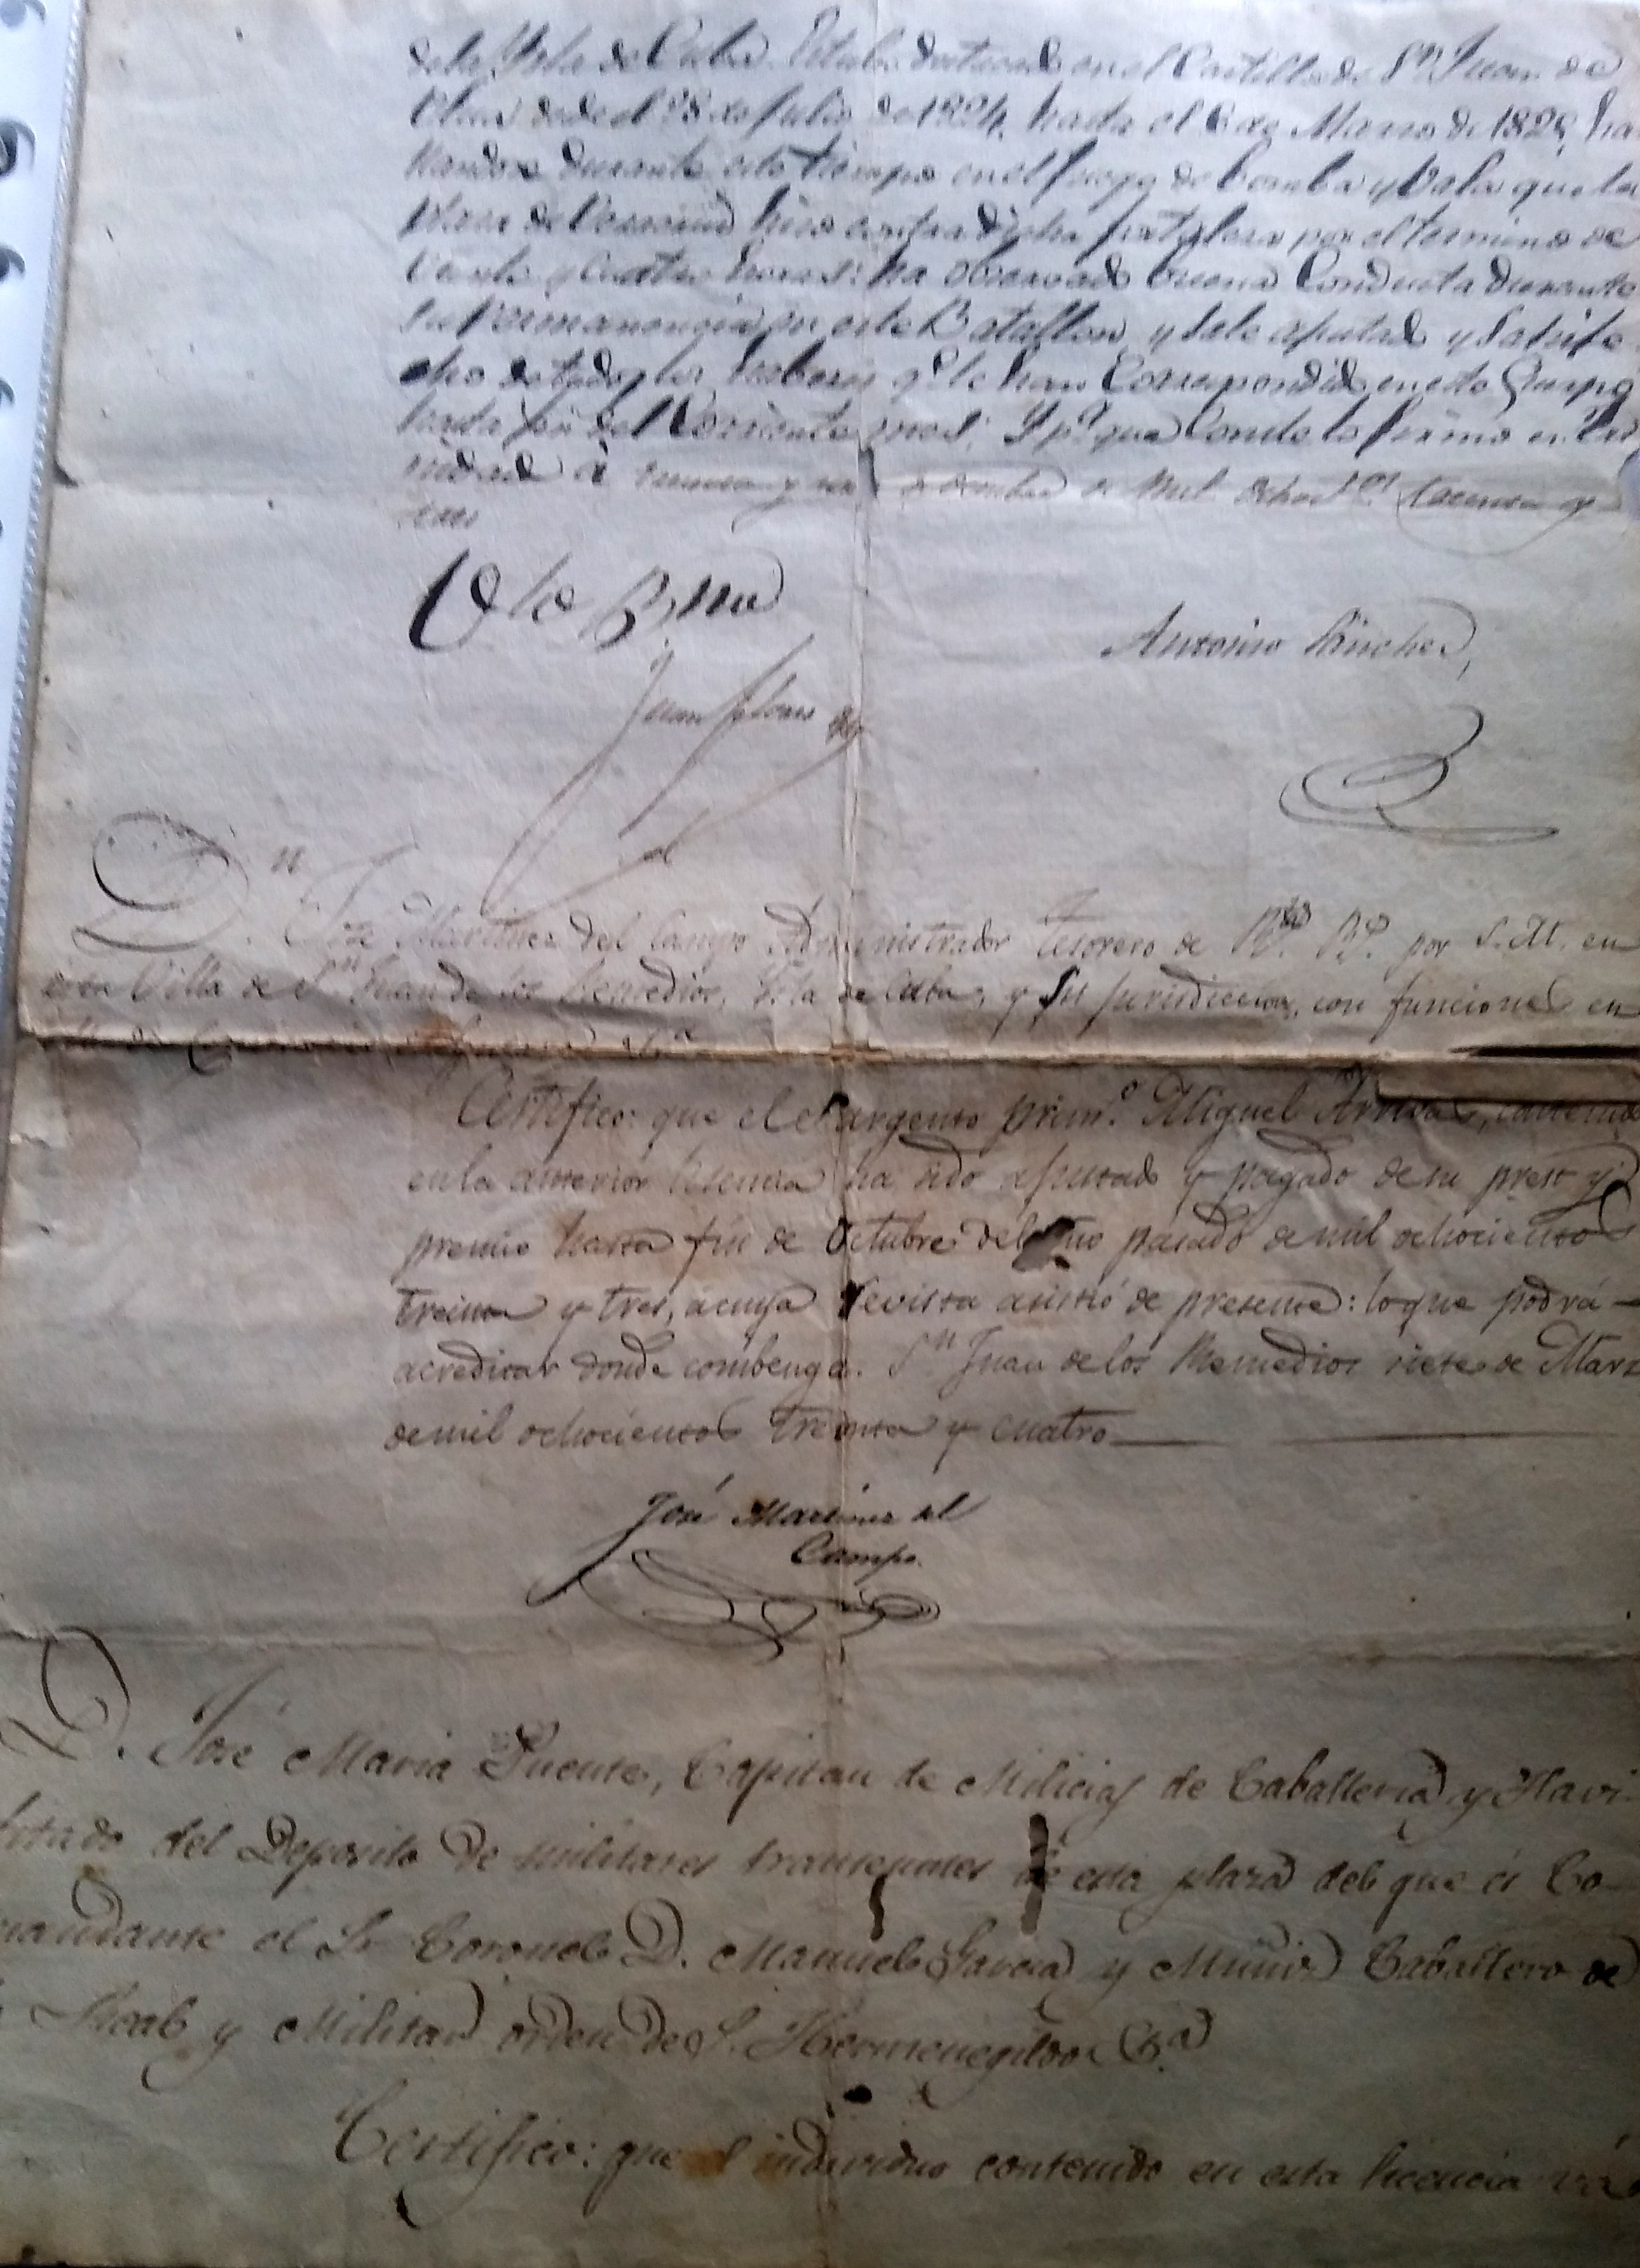 de la Ysla de Cuba. Estubo destacado en el Castillo de Sn. Juan de
Ulua desde el 28 de Julio de 1824 hasta el 6 de Marzo de 1825, ha
llandose durante este tiempo en el fuego de bomba y bala que la
plaza de Veracruz hizo contra dicha fortaleza por el termino de
Veinte y Cuatro horas: ha observado buena Conducta durante
su Permanencia en este Batallon, y sale ajustado y satisfe
cho de todos los haberes qe. le han Correspondido en este Cuerpo
hasta fin del Corriente mes; Y pa. que Conste lo firmo en Tri
nidad á treinta y uno de de mil ochos.tos treinta y
tres
Vto. Bno.
Antonio Sanchez
Juan
Dn. José Martinez del Campo Administrador Tesorero de Rs. Rs. por S. M. en
esta Villa de Sn. Juan de los Remedios, Ysla de Cuba, y su jurisdiccion, con funciones en
Certifico: que el Sargento prim.o Miguel Arribas, contenido
en la anterior licencia ha sido ajustado y pagado de su prest y
premio hasta fin de Octubre del año pasado de mil ochocientos
treinta y tres, a cuya revista asistió de presente: lo que podrá
acreditar donde combenga. Sn. Juan de los Remedios siete de Marz
de mil ochocientos treinta y cuatro
José Martinez del
Campo.
D. José Maria Puente, Capitan de Milicias de Caballeria y Havi-
litado del Deposito de militares transeuntes de esta plaza del que es Co-
mandante el Sr. Coronel D. Manuel Garcia y Muñiz Caballero de
Real y Militar orden de S. Hermenegildo &.a
Certifico: que el individuo contenido en esta licencia vá